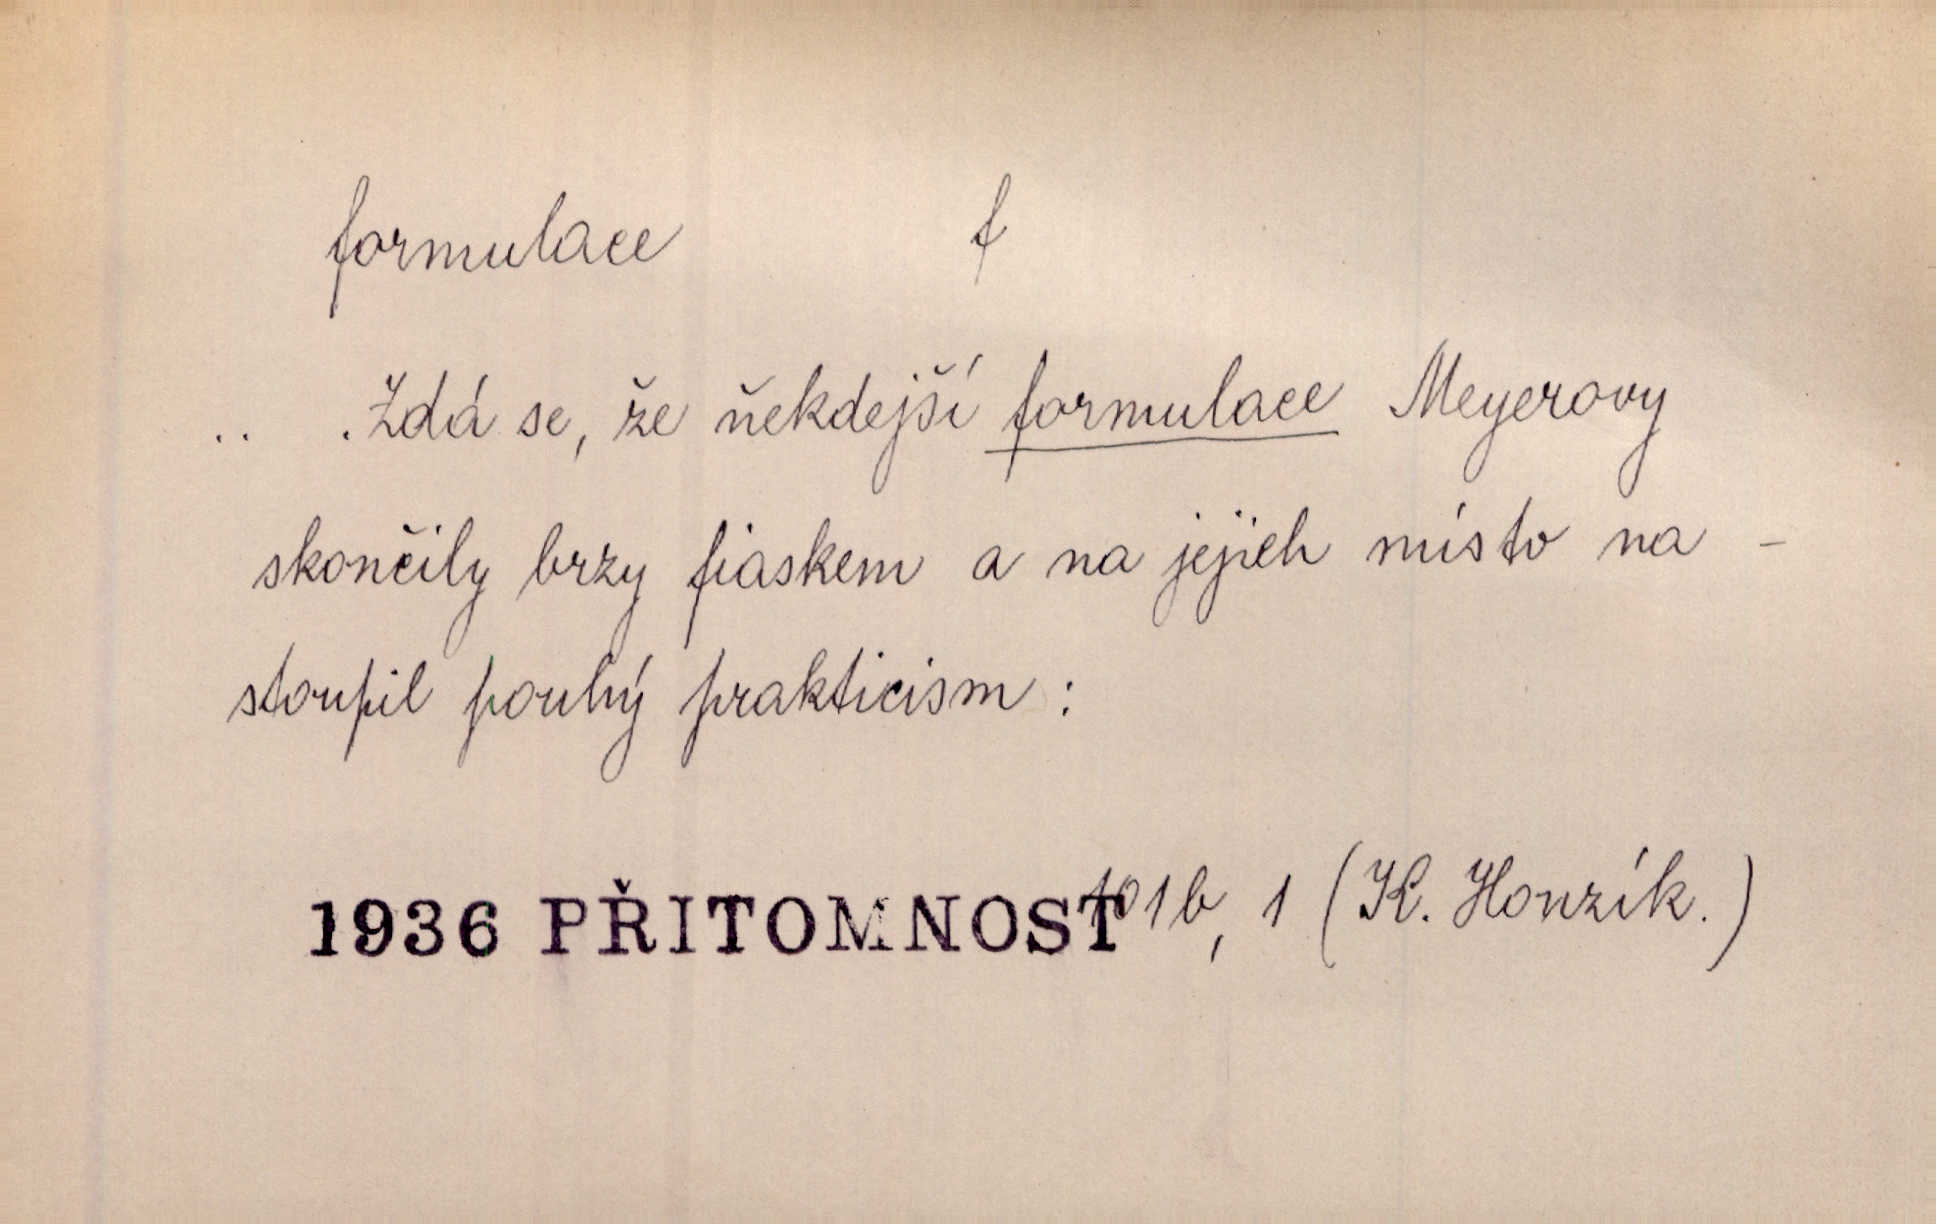 formulace f
.. .Zdá se, že ňekdejší formulace Meyerovy
skončily brzy fiaskem a na jejich místo na -
stoupil pouhý prakticism :
1936 PŘITOMNOST 101b, 1 (K. Honzík.)